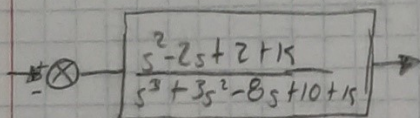 s²-2s+2+K
s³+3s²-8s+10+K
-